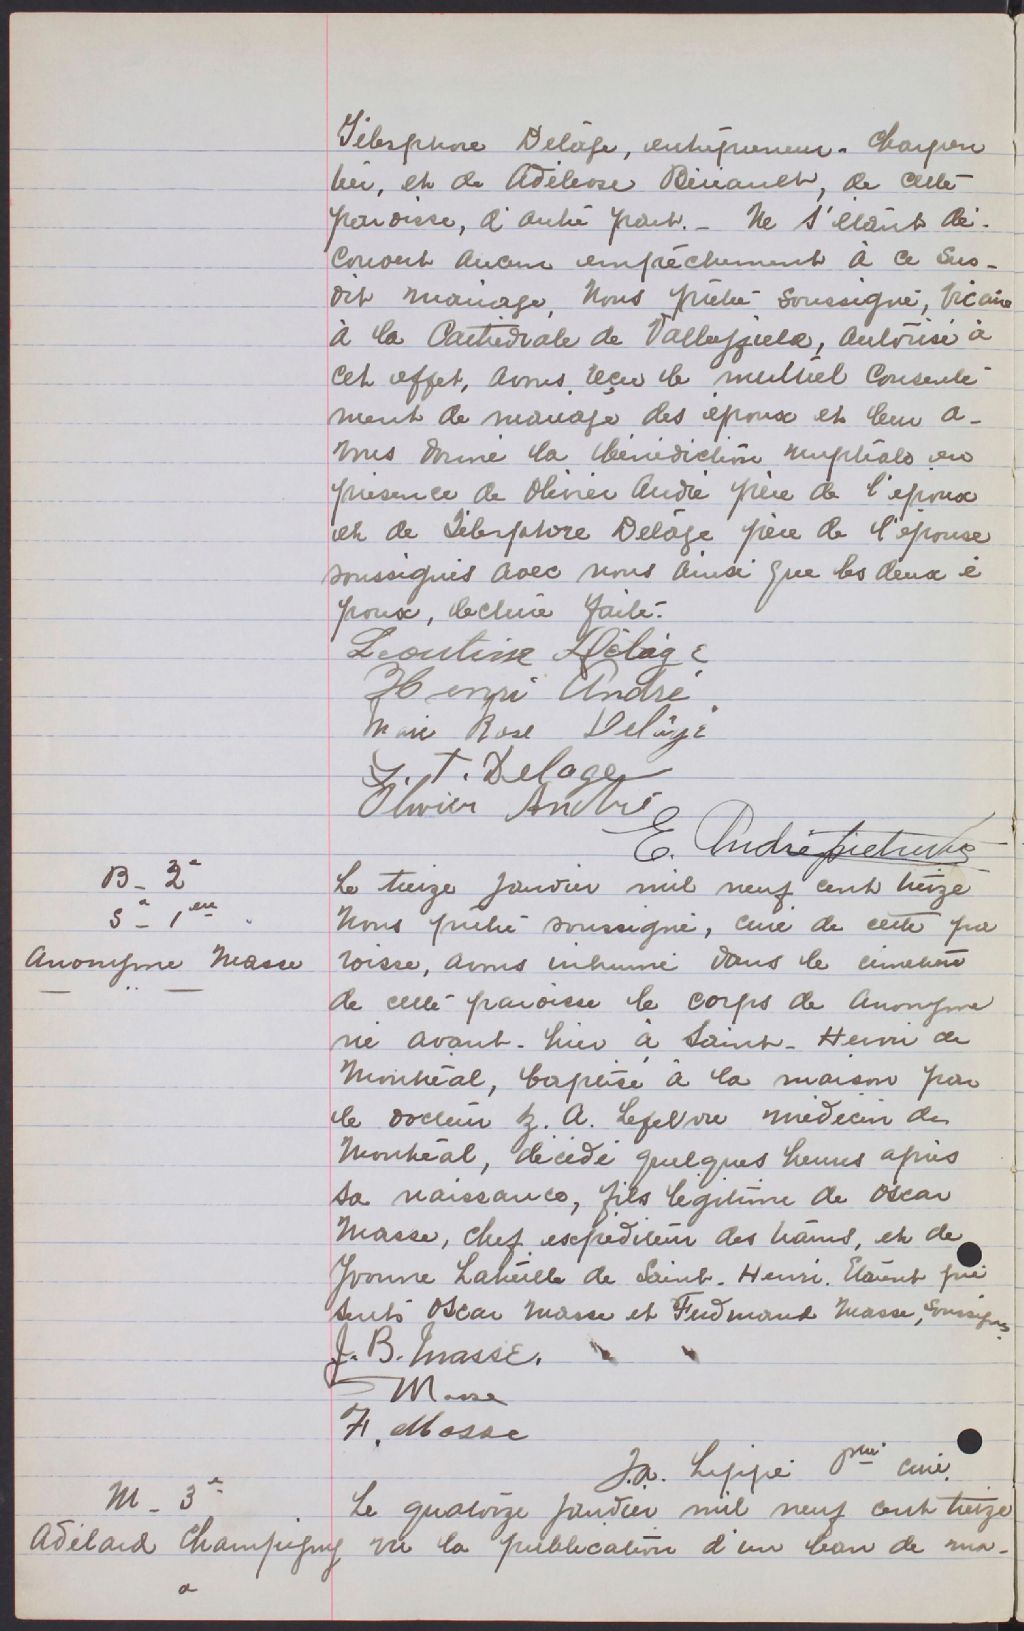 Télesphore Delâge, entrepreneur-charpen
tier, et de Adéleose Benault, de cette
paroisse, d'autre part. - Ne s'étant dé-
couvert aucun empêchement à ce sus-
dit mariage, Nous prêtre soussigné, Vicaire
à la Cathédrale de Valleyfield, autorisé à
cet effet, avons reçu le mutuel consente
ment de mariage des époux et leur a-
vons donné la bénédiction nuptiale en
présence de Olivier André père de l'époux
et de Télesphore Delâge père de l'épouse
soussignés avec nous ainsi que les deux é
poux, lecture faite.
Leontine Delâge
Henri André
Marie Rose Delâge
J. T. Delage
Olivier André
E. André ptre
B - 2e
S - 1ere
Anonyme Masse
Le treize janvier mil neuf cent treize
Nous prêtre soussigné, curé de cette pa
roisse, avons inhumé dans le cimetière
de cette paroisse le corps de anonyme
né avant-hier à Saint-Henri de
Montréal, baptisé à la maison par
le docteur J. A. Lefebvre médecin de
Montréal, décédé quelques heures après
sa naissance, fils légitime de Oscar
Masse, chef expéditeur des trains, et de
Yvonne Latreille de Saint-Henri. Etaient pré
sents Oscar Masse et Ferdinand Masse, soussignés
J. B. Masse.
Masse
F. Masse
J. A. Lippé ptre curé.
M - 3e
Adélard Champigny
a
Le quatorze janvier mil neuf cent treize
vu la publication d'un ban de ma-